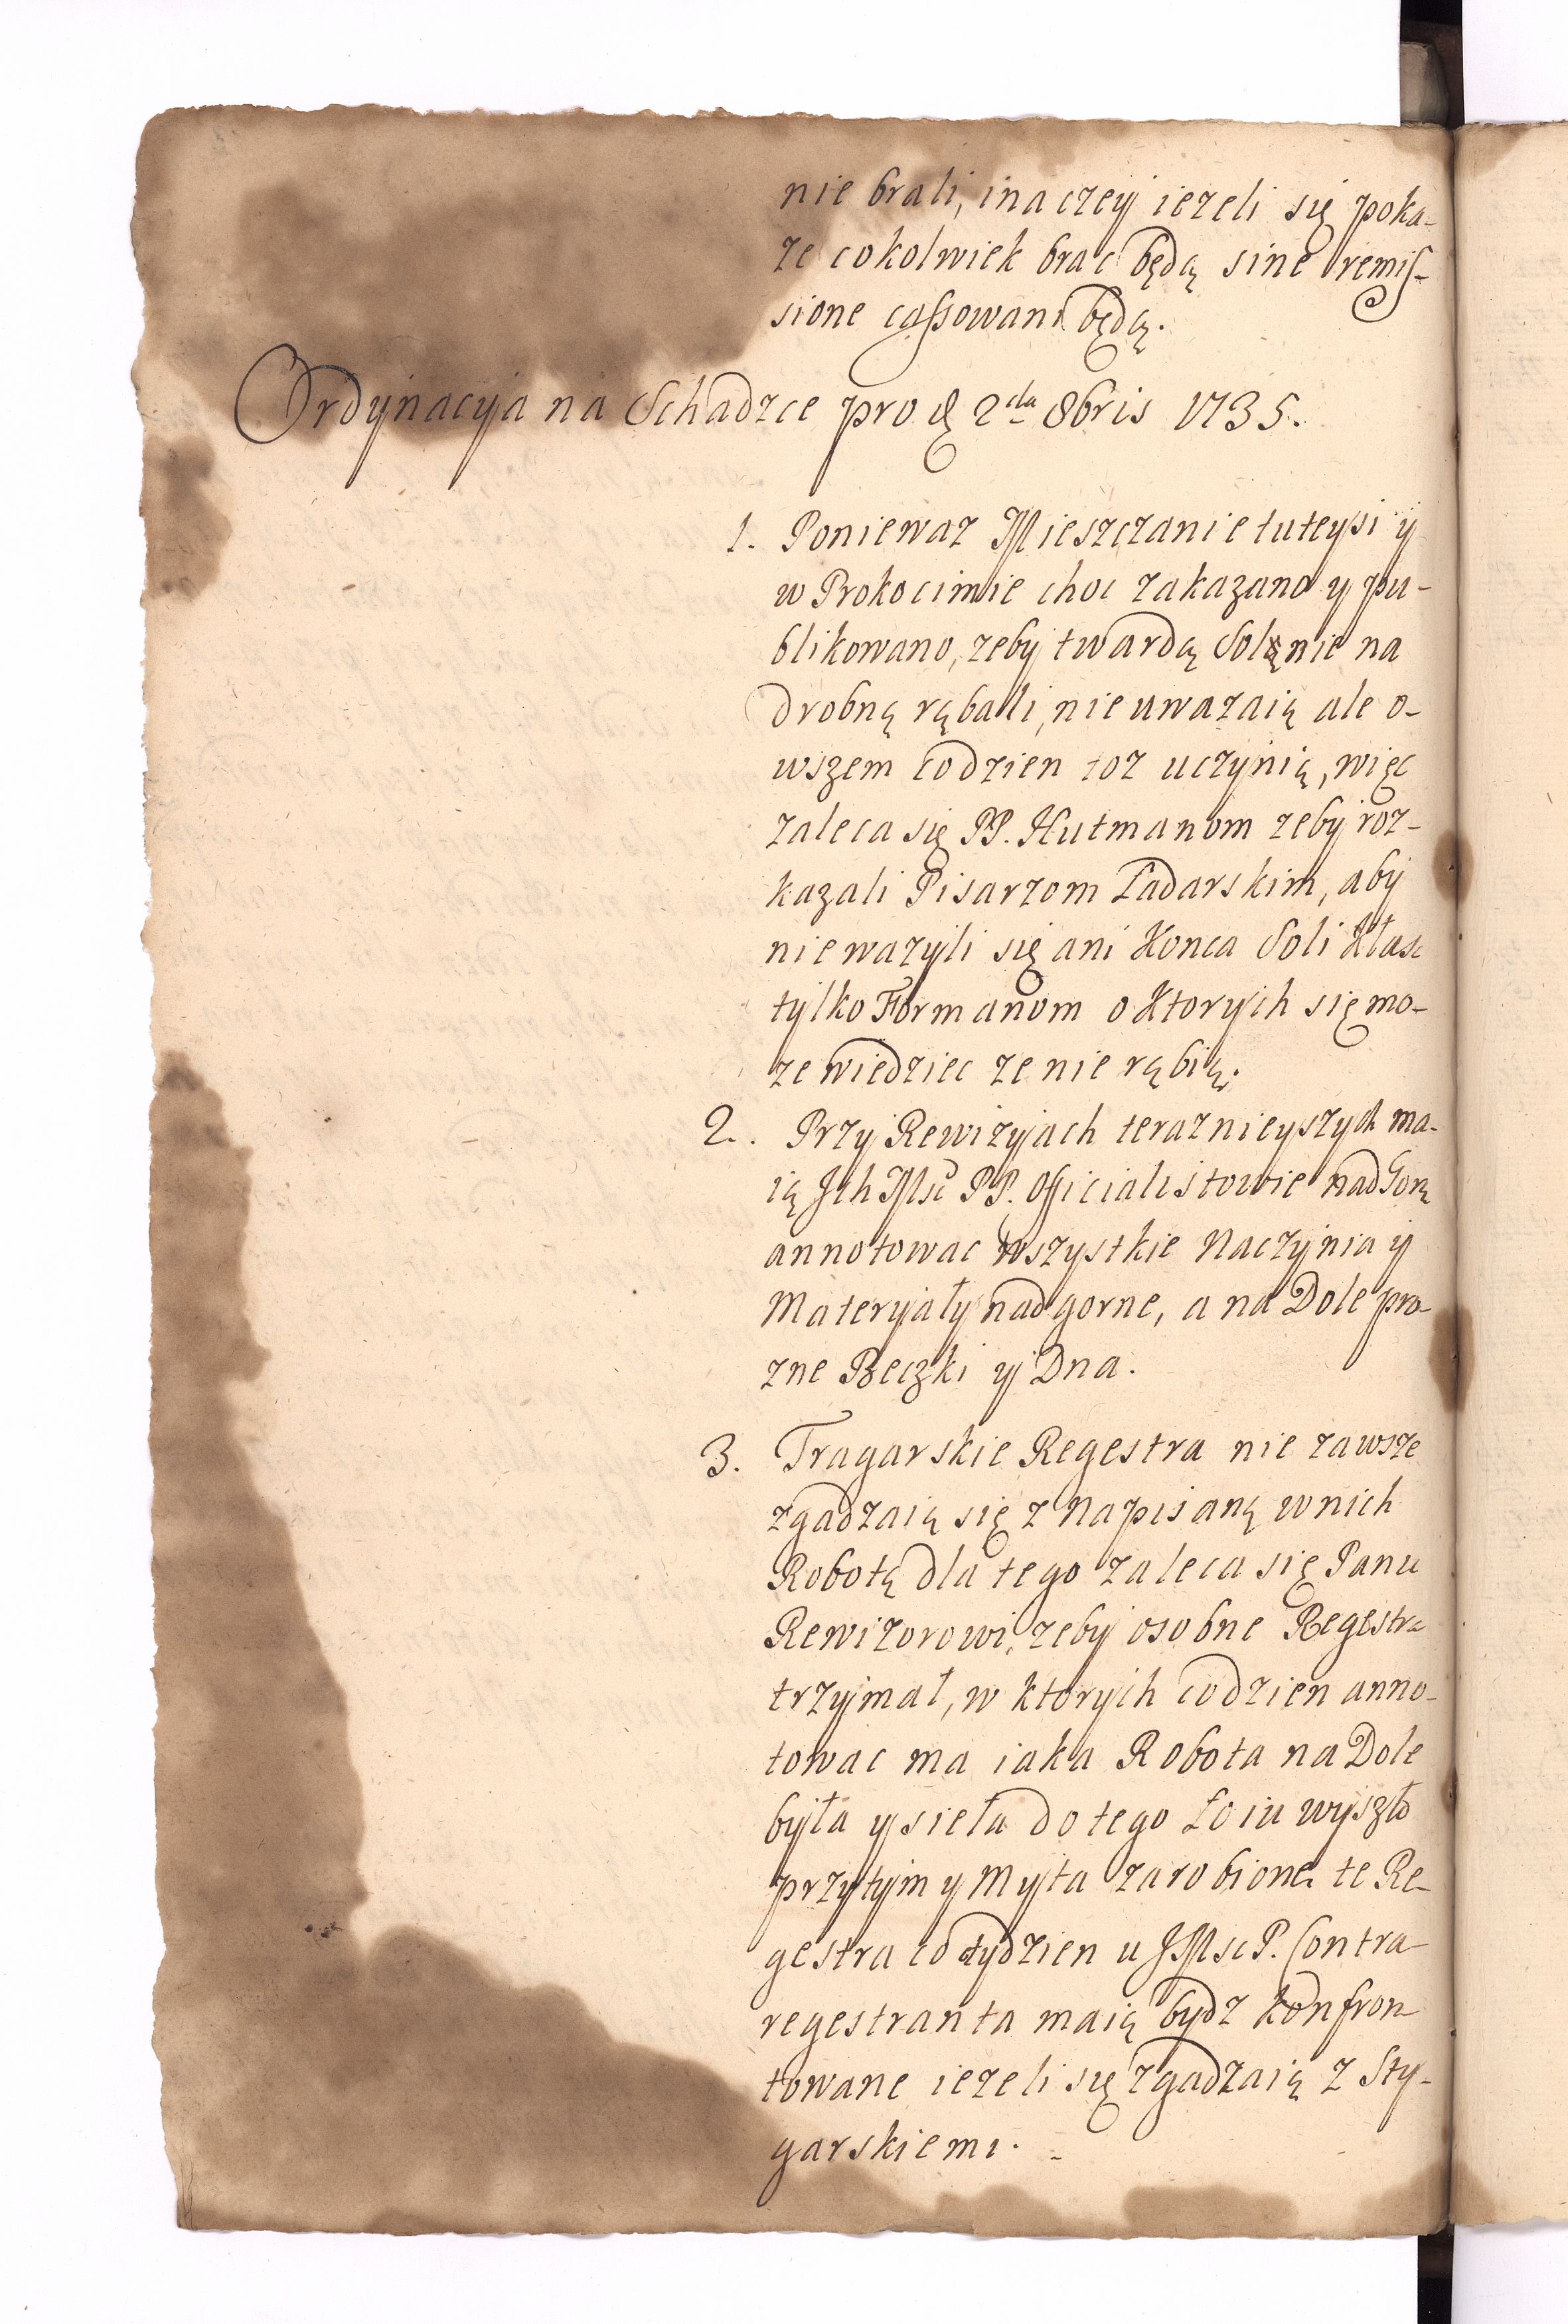 nie brali, inaczey iezeli się poka-
ze cokolwiek brac będą sine remis-
sione cassowani będą.
Ordynacyja na Schadzce pro d 2da 8bris 1735.
1. Poniewaz Mieszczanie tuteysi y
w Prokocimie choc zakazano y pu-
blikowano, zeby twardą Solą nie na
drobną rąbali, nie uwazaią ale o-
wszem codzien toz uczynią, więc
zaleca się PP. Hutmanom zeby roz-
kazali Pisarzom Ładarskim, aby
nie wazyli się ani Konca Soli Kłasc
tylko Formanom o Ktorych się mo-
ze wiedziec ze nie rąbią.
2. Przy Rewizyjach teraznieyszych ma-
ią Jch Msć PP. Officialistowie nad Gorą
annotowac wszystkie Naczynia y
Materyjały nadgorne, a na Dole pro-
zne Beczki y Dna.
3. Tragarskie Regestra nie zawsze
zgadzaią się z Napisaną w nich
Robotą dla tego zaleca się Panu
Rewizorowi, zeby osobne Regestra
trzymał, w ktorych codzien anno-
towac ma iaka Robota na Dole
była y sieła do tego Łoiu wyszło
przytym y Myta zarobione te Re-
gestra co tydzien u JMsc P. Contra-
regestranta maią bydz konfron-
towane iezeli się zgadzaią z Sty-
garskiemi.